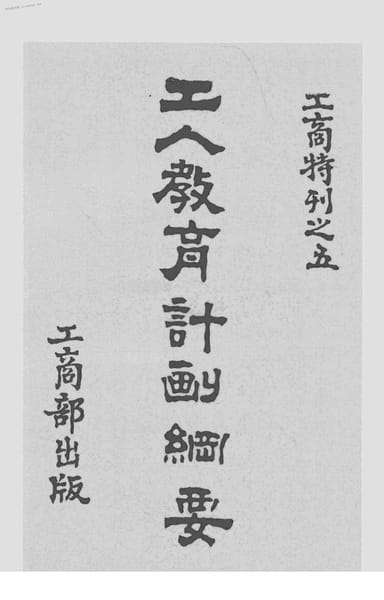 工商特刊之五
工人教育計劃綱要
工商部出版